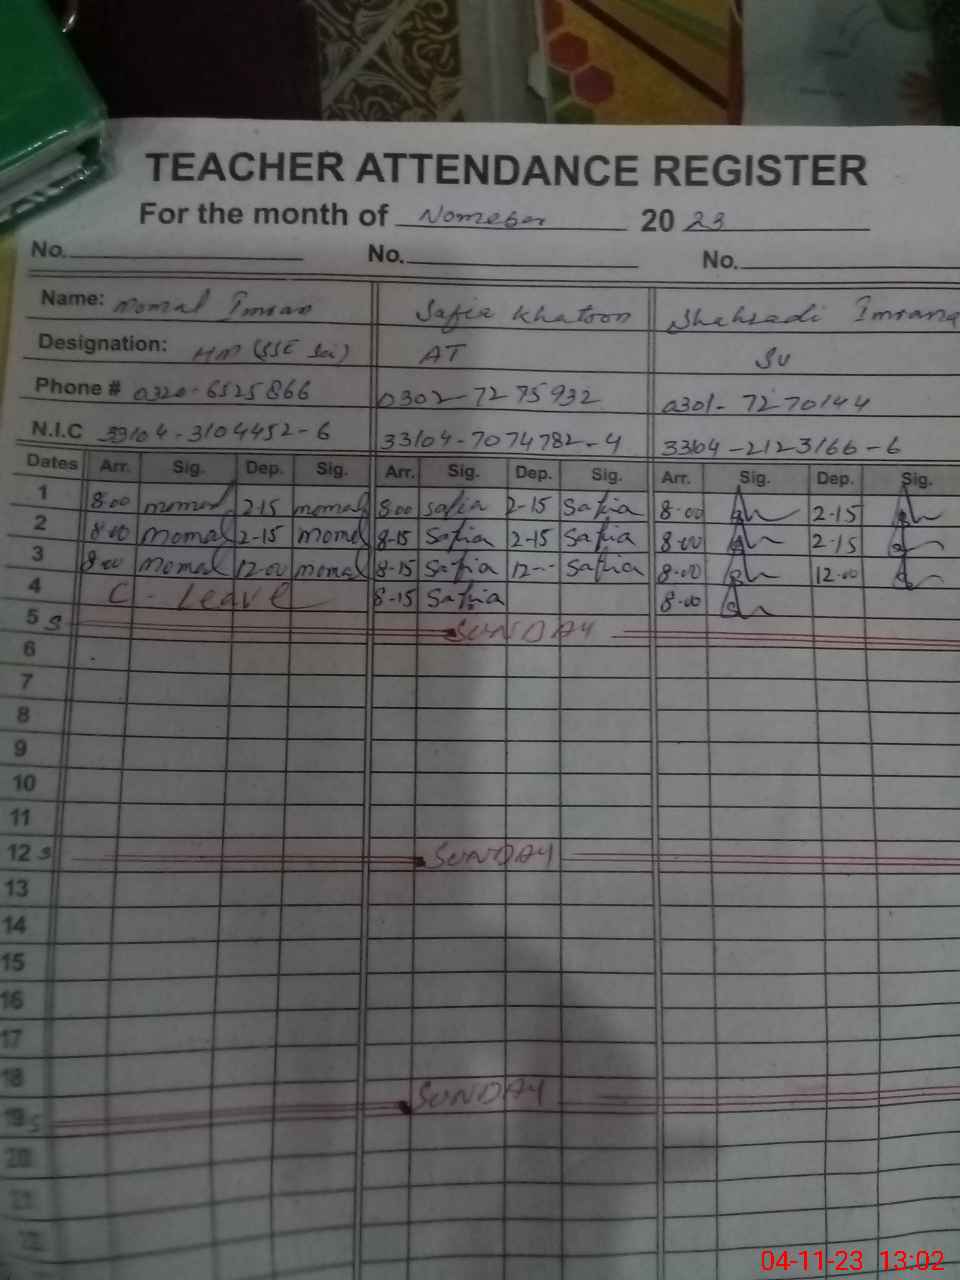 TEACHER ATTENDANCE REGISTER
For the month of Nomeber 2023
No. No. No.
Name: Momal Imran Safia Khatoon Shahzadi Imrana
Designation: HM (SSE Sci) AT SV
Phone # 0320-6525866 0302-7275932 0301-7270144
N.I.C 33104-3104452-6 33104-7074782-4 33104-2123166-6
Dates Arr. Sig. Dep. Sig. Arr. Sig. Dep. Sig. Arr. Sig. Dep. Sig.
1 8.00 momal 2-15 momal 8.00 safia 2-15 Safia 8.00 2.15
2 8.00 momal 2-15 momal 8-15 Safia 2-15 Safia 8.00 2.15
3 8.00 momal 12.00 momal 8-15 Safia 12-- Safia 8.00 12.00
4 C-Leave 8-15 Safia 8.00
5 S SUNDAY
6
7
8
9
10
11
12 S SUNDAY
13
14
15
16
17
18
19 S SUNDAY
20
21
22
04-11-23 13:02